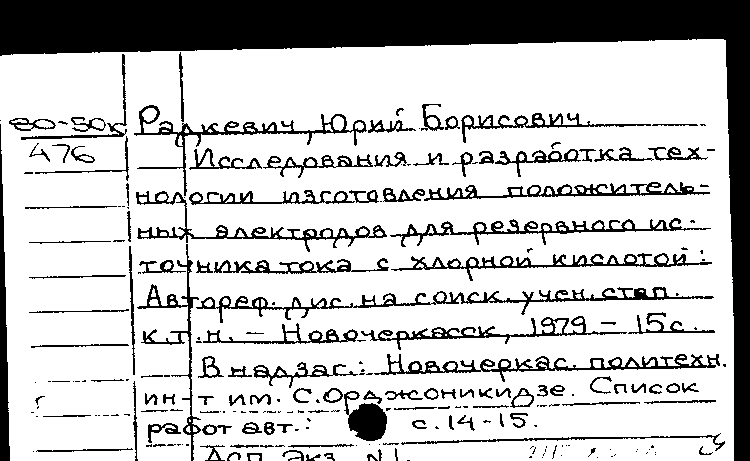 80-50к Радкевич, Юрий Борисович.
476 Исследования и разработка тех-
нологии изготовления положитель-
ных электродов для резервного ис-
точника тока с хлорной кислотой:
Автореф. дис. на соиск. учен. степ.
к.т.н. – Новочеркасск, 1979 – 15с.
В надзаг.: Новочеркас. политехн.
ин-т им. С.Орджоникидзе. Список
работ авт.: с.14-15.
Доп. экз. N1.